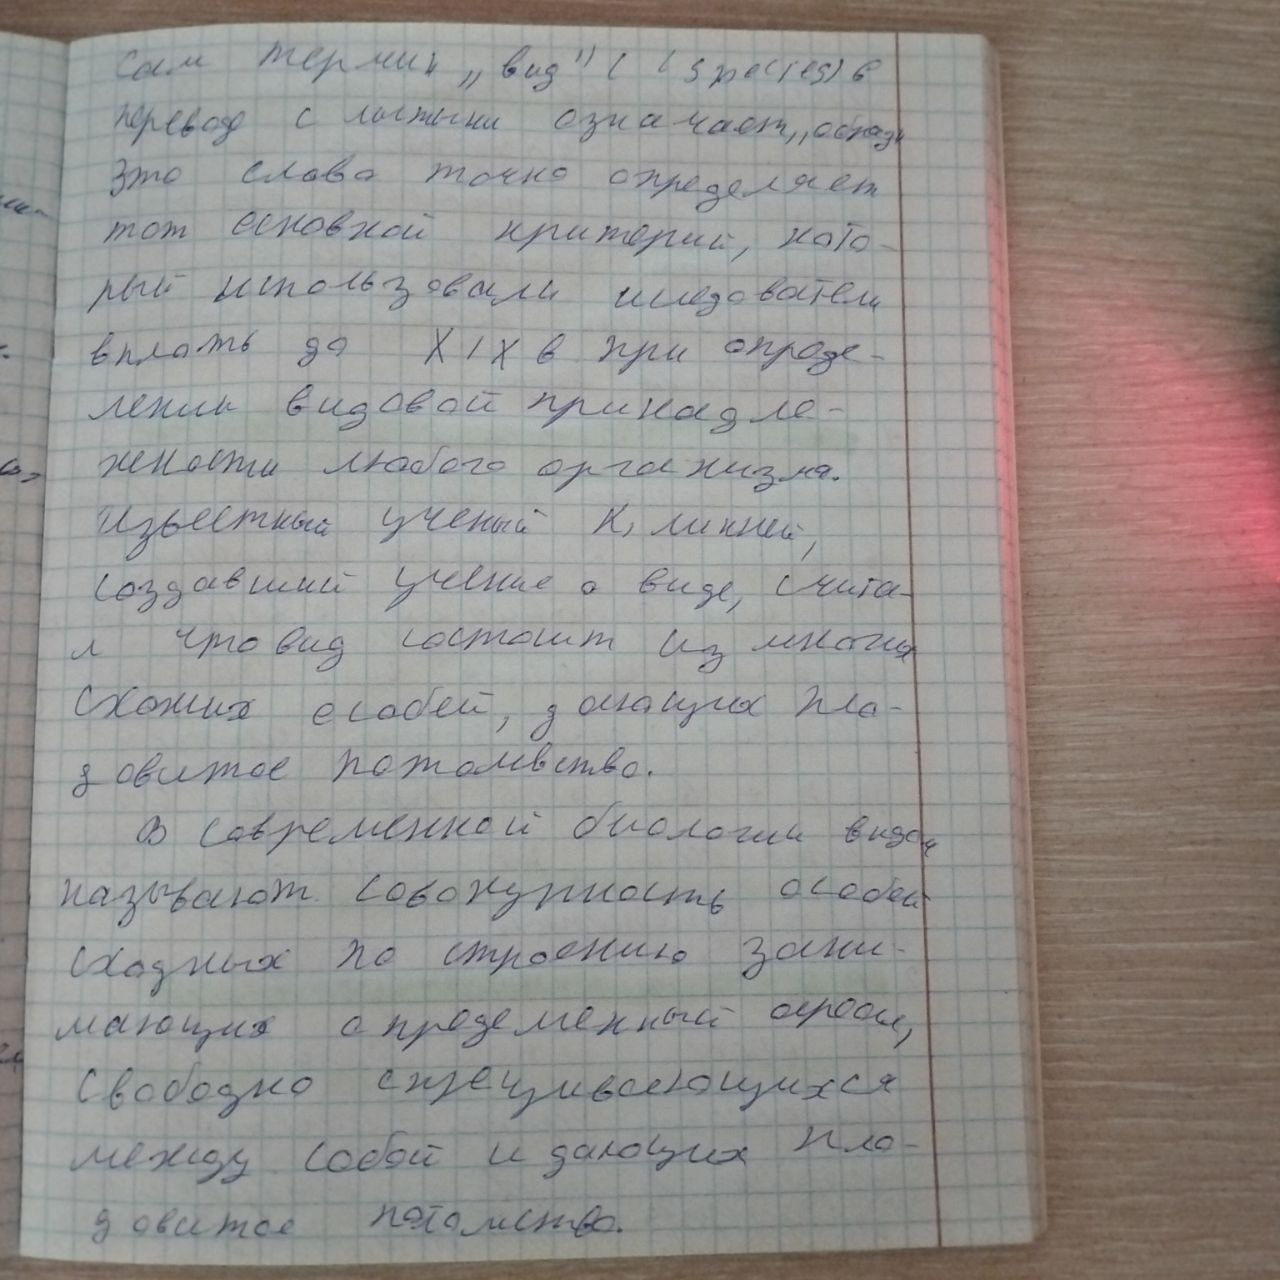 Сам термин „вид" ( (species) в
перевод с латыни означает „образ"
Это слово точно определяет
тот основной критерий, кото-
рый использовали иследователи
вплоть до XIX в при опреде-
лении видовой принадле-
жности любого организма.
Известный ученый К, линней,
создавший учение о виде, счита-
л что вид состоит из многих
схожих особей, дающих пло-
довитое потомвство.
В современной биологии видом
называют совокупность особей
сходных по строению зани-
мающих определенный ареал,
свободно скрещивающихся
между собой и дающих пло-
довитое потомство.